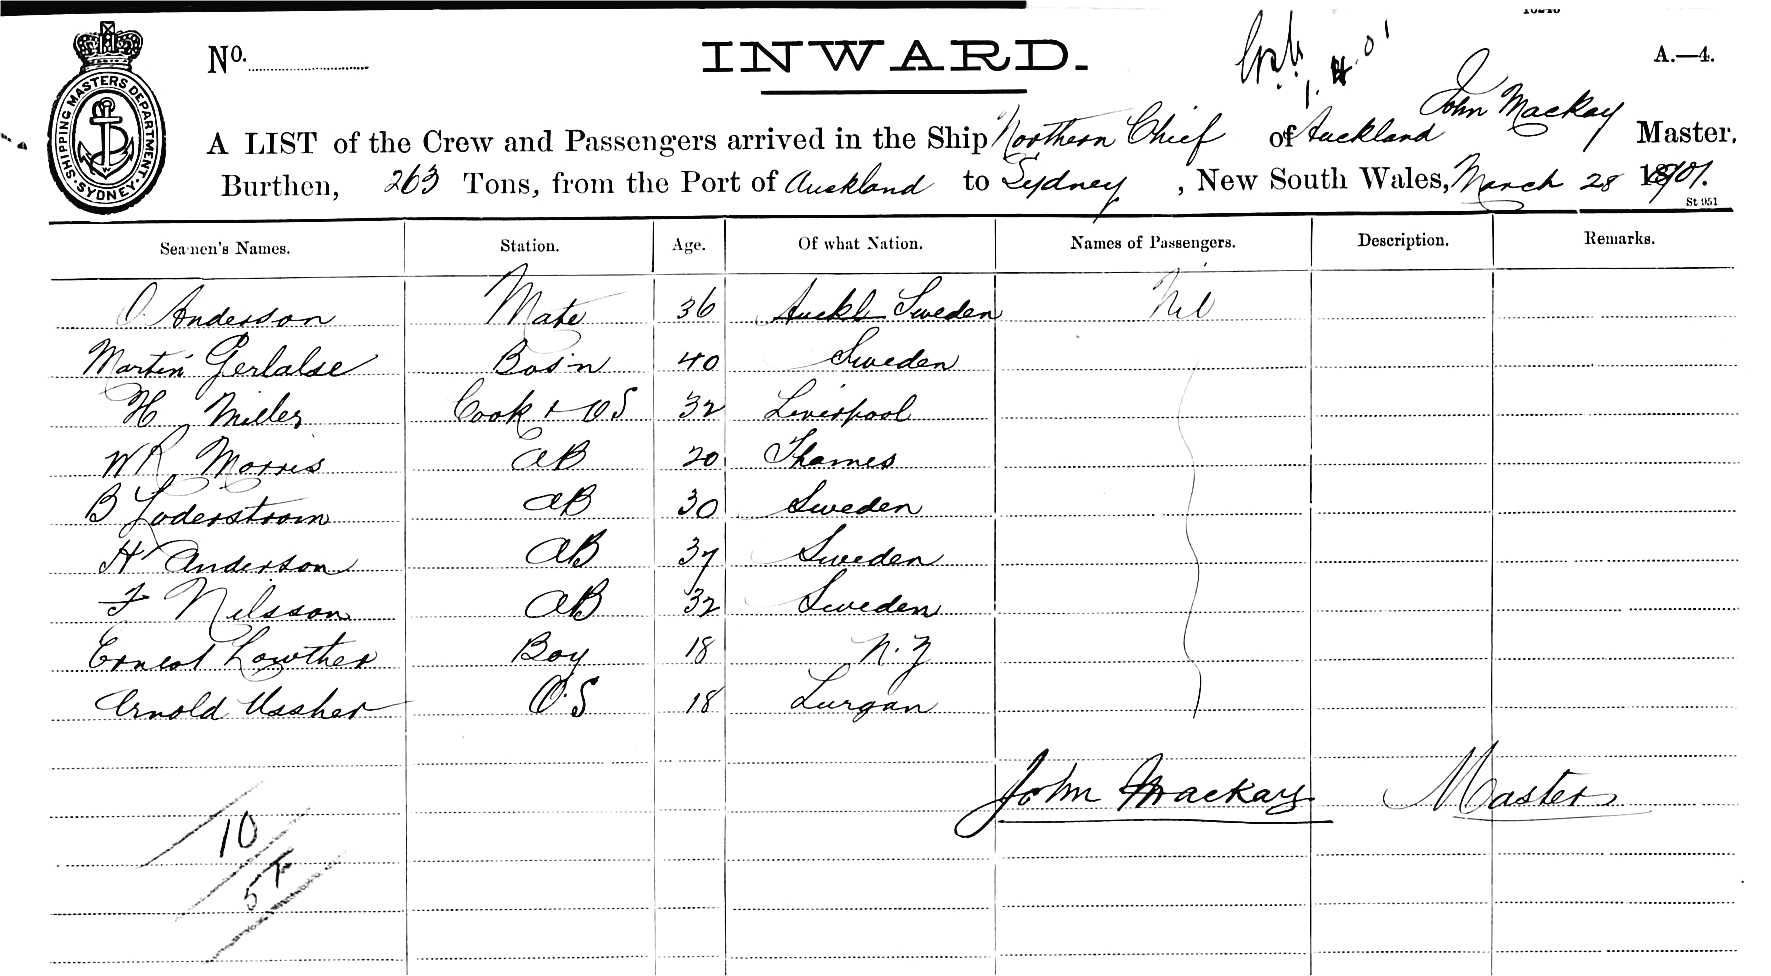 SHIPPING MASTERS DEPARTMENT. SYDNEY.
No.
INWARD.
1. 4. 01
A.—4.
John Mackay
A LIST of the Crew and Passengers arrived in the Ship Northern Chief of Auckland Master.
Burthen, 263 Tons, from the Port of Auckland to Sydney, New South Wales, March 28 1901.
St 951
Seamen's Names. Station. Age. Of what Nation. Names of Passengers. Description. Remarks.
O. Anderson Mate 36 Auckld Sweden Nil
Martin Bos'n 40 Sweden
H Miller Cook + OS 32 Liverpool
WR Morris AB 20 Thames
B Soderstrom AB 30 Sweden
H Anderson AB 37 Sweden
F Nilsson AB 32 Sweden
Ernest Lowther Boy 18 N.Z
Arnold Ussher O.S 18 Lurgan
John Mackay Master
10
5